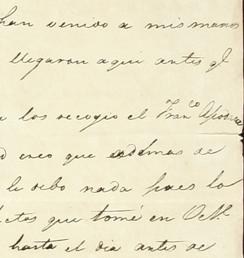 han venido a mis manos
llegaron aqui antes q
a los recogio el Fran.co
creo que ademas de
le debo nada pues lo
que tomé en Oct
hasta el dia antes de